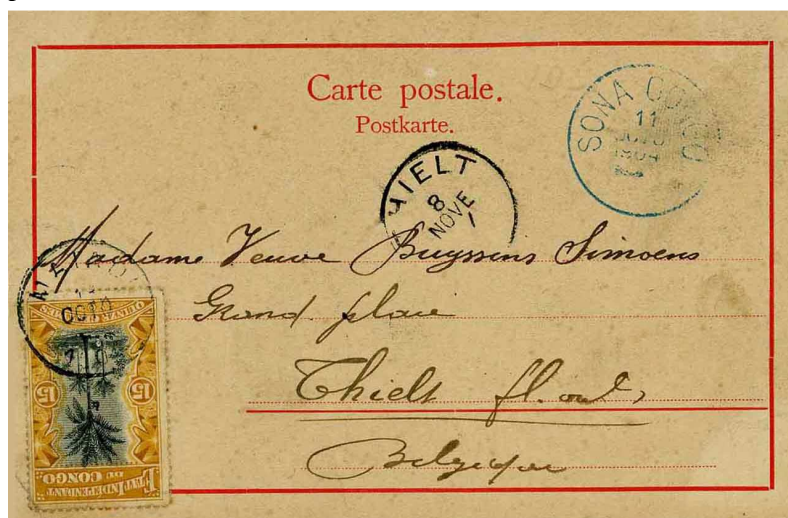 Carte postale.
Postkarte.
SONA CONGO
11
1904
THIELT
8
NOVE
Madame Veuve Buyssens Simoens
Grand place
Thielt fl. occ
Belgique
OCTO
QUINZE CENTIMES
15 15
ETAT INDEPENDANT
DU CONGO